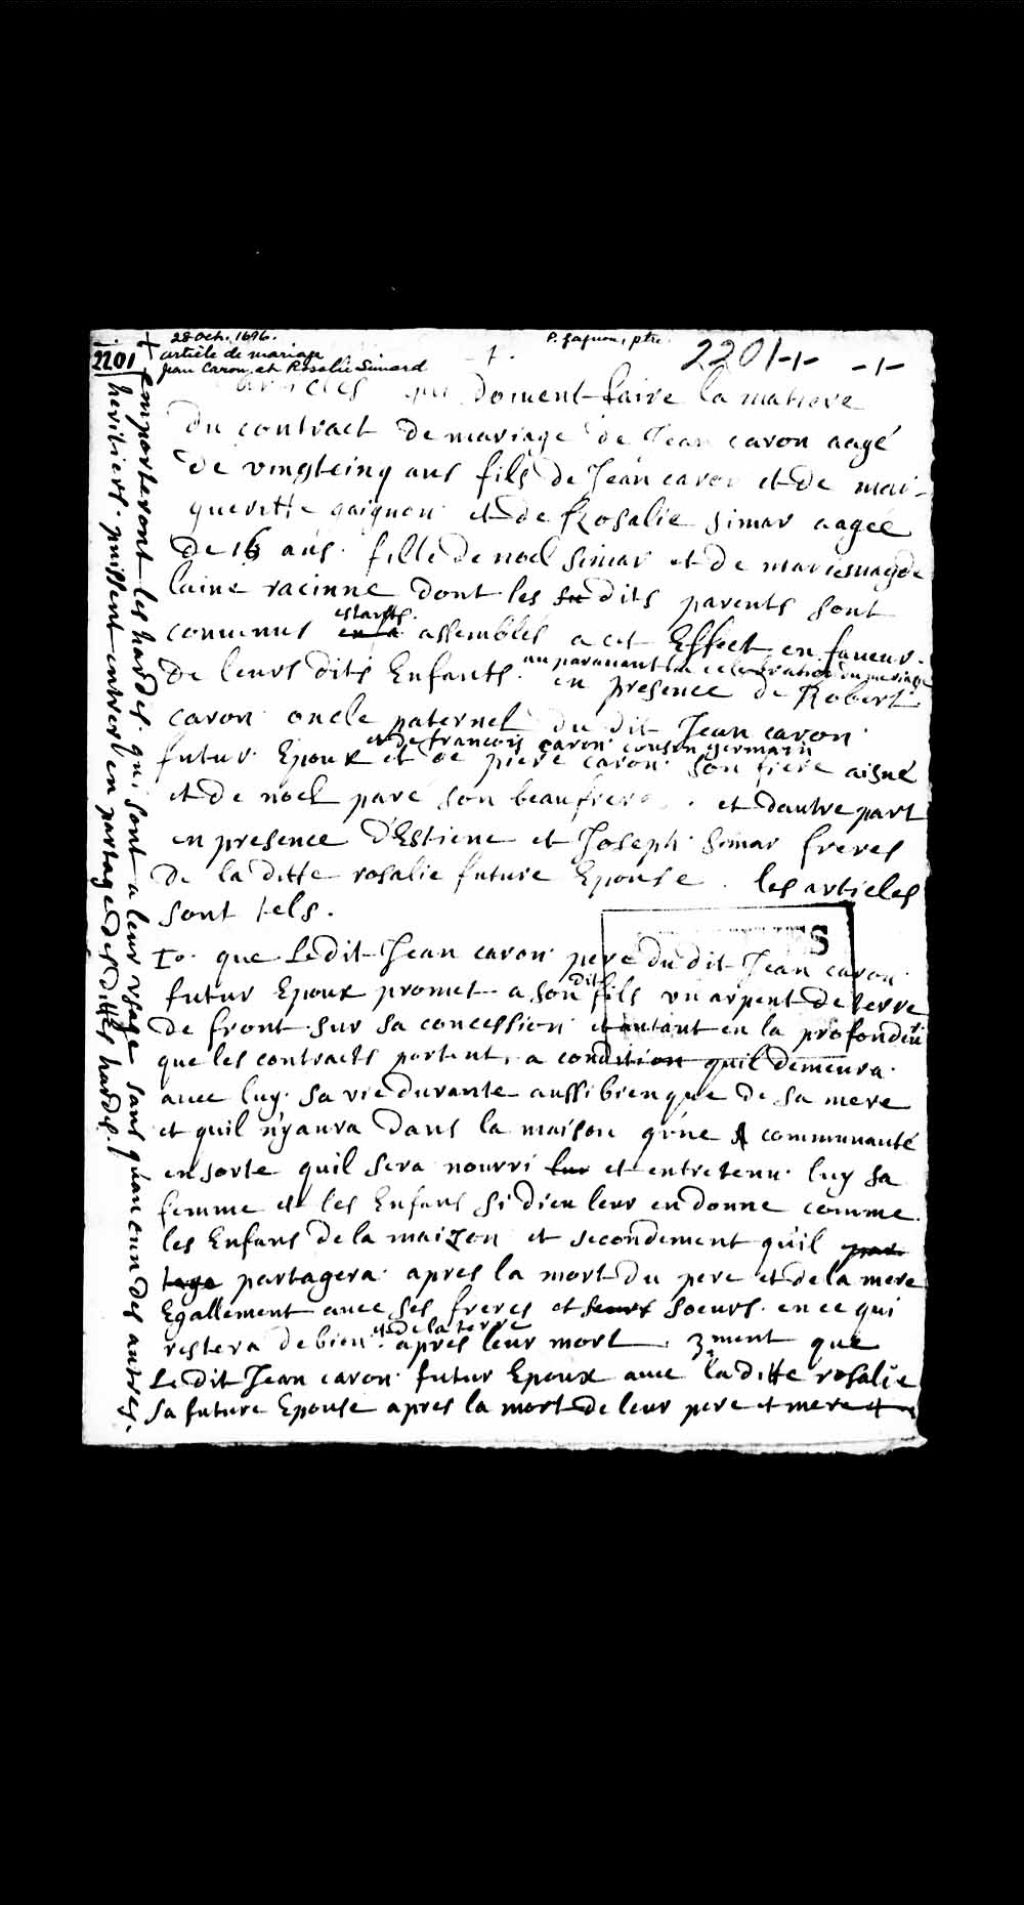 28 Oct. 1696.
article de mariage
Jean Caron et Rosalie Simard
P. Gagnon, ptre.
2201
2201
articles qui doivent faire la matiere
du contract de mariage de Jean caron aagé
de vingtcinq ans fils de Jean caron et de mar-
gueritte gaignon et de Rosalie simar aagée
de 16 ans. fille de noel simar et de mariemagde
laine racinne dont les su dits parents sont
convenus en a estants assemblés a cet Effect en faveur
de leurs dits Enfants. auparauant la celebration du mariage
en presence de Robert
caron oncle paternel du dit Jean caron
et de francois caron cousin germain
futur Epoux et de piere caron son frere aisné
et de noel paré son beaufrere. et dautre part
en presence d'Estiene et Joseph simar freres
de la ditte rosalie future Epouse. les articles
sont tels.
Io. que Ledit Jean caron pere du dit Jean caron
futur Epoux promet a son dit fils un arpent de terre
de front sur sa concession et autant en la profondeur
que les contracts portent, a condition quil demeura
avec luy sa vie durante aussi bien que de sa mere
et quil n'yaura dans la maison qu'ne communauté
ensorte quil sera nourri luy et entretenu luy sa
femme et les Enfans si dieu leur en donne comme
les Enfans de la maizon et secondement qu'il par
tage partagera apres la mort du pere et de la mere
Egallement avec ses freres et seurs soeurs en ce qui
restera de bien et de la terre apres leur mort. 3ment que
Le dit Jean caron futur Epoux avec la ditte rosalie
sa future Epouse apres la mort de leur pere et mere et
+ emporteront les hardes qui sont a leur usage sans qu'aucun des autres
heritiers puissent entrer en partage des dittes hardes.